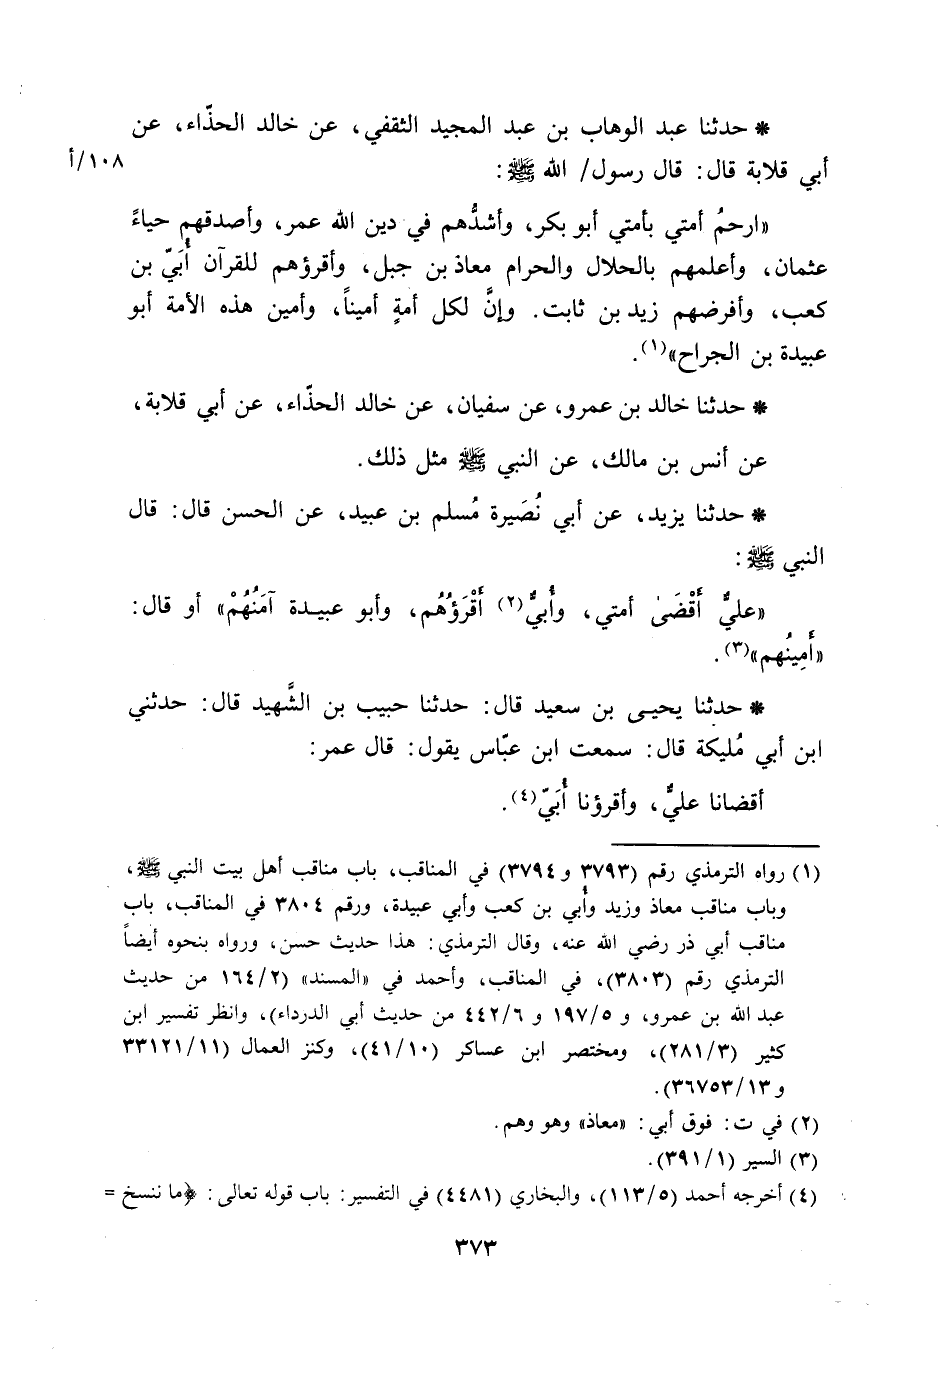 * حدثنا عبد الوهاب بن عبد المجيد الثقفي، عن خالد الحذّاء، عن
أبي قلابة قال: قال رسول/ الله ﷺ:
١٠٨/أ
«ارحمُ أمتي بأمتي أبو بكر، وأشدُّهم في دين الله عمر، وأصدقهم حياءً
عثمان، وأعلمهم بالحلال والحرام معاذ بن جبل، وأقرؤهم للقرآن أُبَيّ بن
كعب، وأفرضهم زيد بن ثابت. وإنَّ لكل أمةٍ أميناً، وأمين هذه الأمة أبو
عبيدة بن الجراح»(١).
* حدثنا خالد بن عمرو، عن سفيان، عن خالد الحذّاء، عن أبي قلابة،
عن أنس بن مالك، عن النبي ﷺ مثل ذلك.
* حدثنا يزيد، عن أبي نُصَيرة مُسلم بن عبيد، عن الحسن قال: قال
النبي ﷺ:
«عليٌّ أَقْضَىٰ أمتي، وأُبيٌّ(٢) أَقْرَؤُهُم، وأبو عبيدة آمَنُهُمْ» أو قال:
«أَمِينُهم»(٣).
* حدثنا يحيى بن سعيد قال: حدثنا حبيب بن الشَّهيد قال: حدثني
ابن أبي مُليكة قال: سمعت ابن عبّاس يقول: قال عمر:
أقضانا عليٌّ، وأقرؤنا أُبَيّ(٤).
(١) رواه الترمذي رقم (٣٧٩٣ و٣٧٩٤) في المناقب، باب مناقب أهل بيت النبي ﷺ،
وباب مناقب معاذ وزيد وأُبي بن كعب وأبي عبيدة، ورقم ٣٨٠٤ في المناقب، باب
مناقب أبي ذر رضي الله عنه، وقال الترمذي: هذا حديث حسن، ورواه بنحوه أيضاً
الترمذي رقم (٣٨٠٣)، في المناقب، وأحمد في «المسند» (١٦٤/٢ من حديث
عبد الله بن عمرو، و ١٩٧/٥ و ٤٤٢/٦ من حديث أبي الدرداء)، وانظر تفسير ابن
كثير (٢٨١/٣)، ومختصر ابن عساكر (٤١/١٠)، وكنز العمال (٣٣١٢١/١١
و٣٦٧٥٣/١٣).
(٢) في ت: فوق أبي: «معاذ» وهو وهم.
(٣) السير (٣٩١/١).
(٤) أخرجه أحمد (١١٣/٥)، والبخاري (٤٤٨١) في التفسير: باب قوله تعالى: ﴿ما ننسخ =
٣٧٣